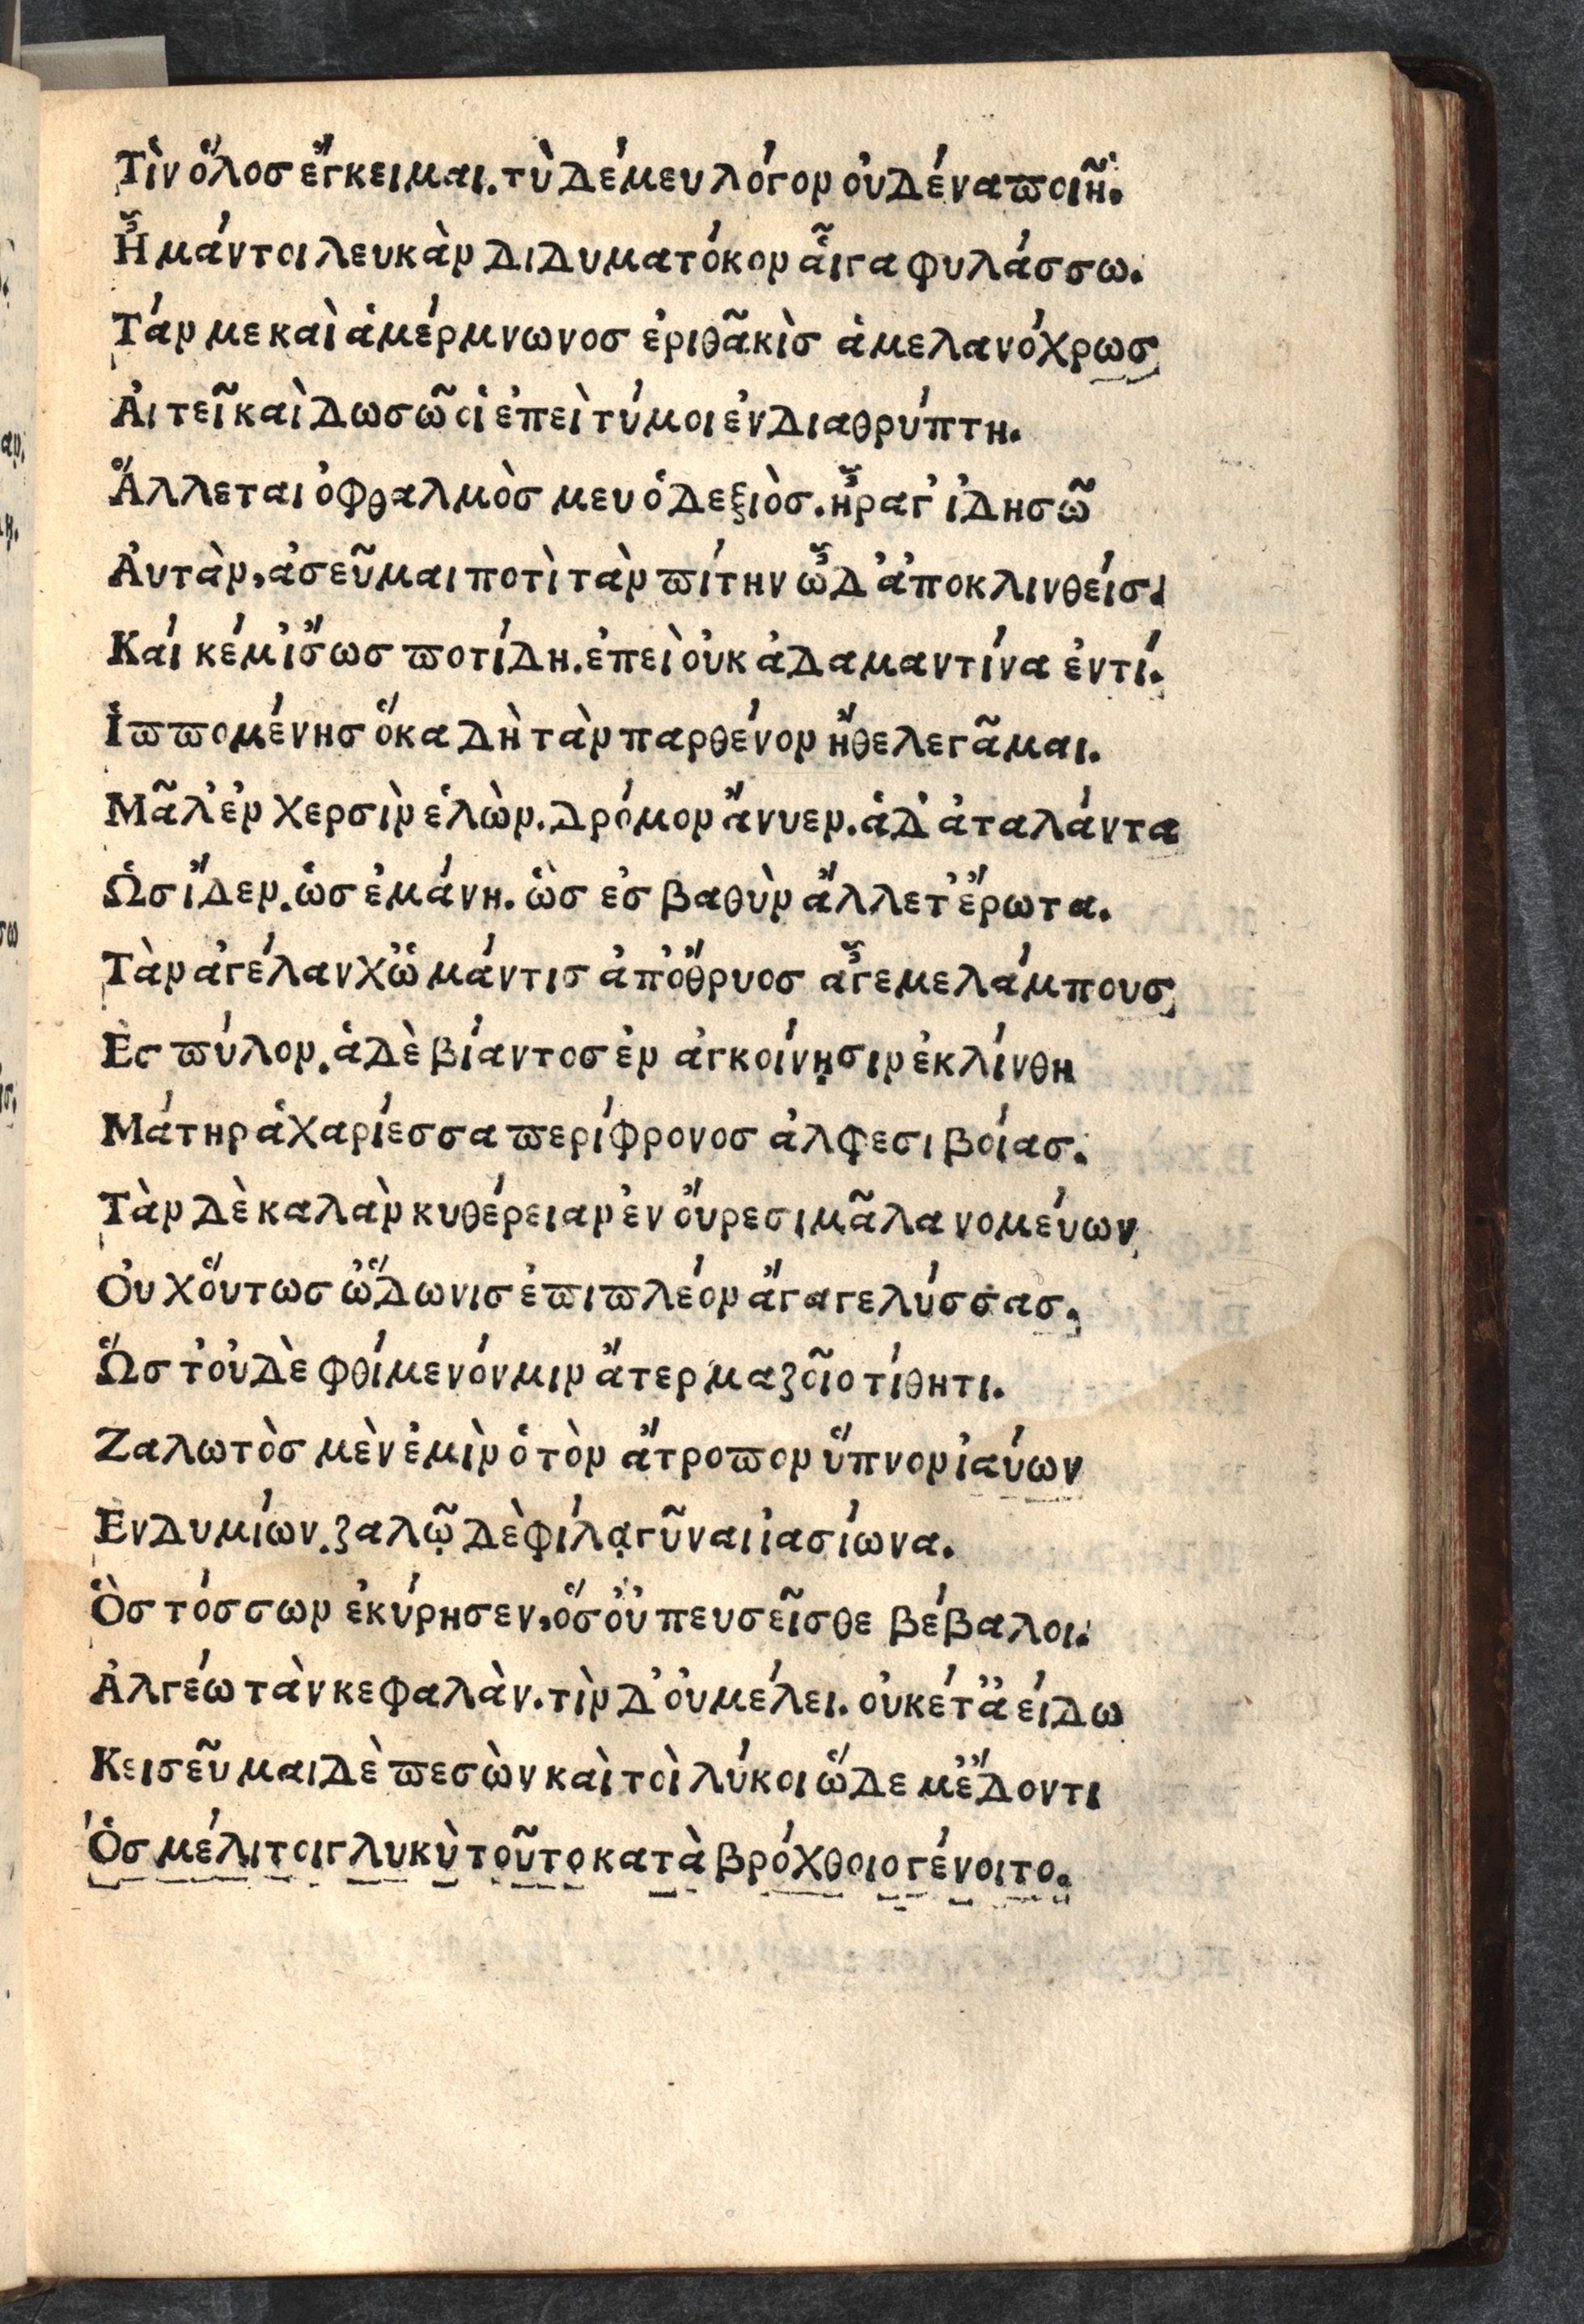 Τὶν ὅλοσ ἔγκειμαι. τὺ δέ μευ λόγον οὐδένα ποιῆ.
Ἦ μάν τοι λευκὰν διδυματόκον αἶγα φυλάσσω.
Τάν με καὶ ἁ μέρμνωνοσ ἐριθᾶκὶσ ἁ μελανόχρωσ
Αἰτεῖ καὶ δωσῶ οἱ ἐπεὶ τύ μοι ἐνδιαθρύπτη.
Ἅλλεται ὀφθαλμὸσ μευ ὁ δεξιὸσ. ἦρα γ' ἰδησῶ
Ἀυτὰν, ἀσεῦμαι ποτὶ τὰν πίτην ὧδ' ἀποκλινθείσ.
Καί κέ μ' ἴσωσ ποτίδη. ἐπεὶ οὐκ ἀδαμαντίνα ἐντί.
Ἱππομένησ ὅκα δὴ τὰν παρθένον ἤθελε γᾶμαι.
Μᾶλ' ἐν χερσὶν ἑλὼν. δρόμον ἄνυεν. ἁ δ' ἀταλάντα
Ὡσ ἴδεν. ὡσ ἐμάνη. ὣσ ἐσ βαθὺν ἅλλετ' ἔρωτα.
Τὰν ἀγέλαν χὤ μάντισ ἀπ' ὄθρυοσ ἆγε μελάμπουσ
Ἐσ πύλον. ἁ δὲ βίαντοσ ἐν ἀγκοίνῃσιν ἐκλίνθη
Μάτηρ ἁ χαρίεσσα περίφρονοσ ἀλφεσιβοίασ.
Τὰν δὲ καλὰν κυθέρειαν ἐν ὄυρεσι μᾶλα νομέυων
Ὀυχ ὅυτωσ ὤδωνισ ἐπιπλέον ἄγαγε λύσσασ.
Ὥστ' οὐδὲ φθίμενόν μιν ἄτερ μαζοῖο τίθητι.
Ζαλωτὸσ μὲν ἐμὶν ὁ τὸν ἄτροπον ὕπνον ἰαύων
Ἐνδυμίων. ζαλῶ δὲ φίλα γῦναι ἰασίωνα.
Ὃσ τόσσων ἐκύρησεν, ὅσ' οὐ πευσεῖσθε βέβαλοι.
Ἀλγέω τὰν κεφαλὰν. τὶν δ' οὐ μέλει. οὐκέτ' ἀείδω
Κεισεῦμαι δὲ πεσὼν καὶ τοὶ λύκοι ὧδε μ' ἔδοντι
Ὡσ μέλι τοι γλυκὺ τοῦτο κατὰ βρόχθοιο γένοιτο.